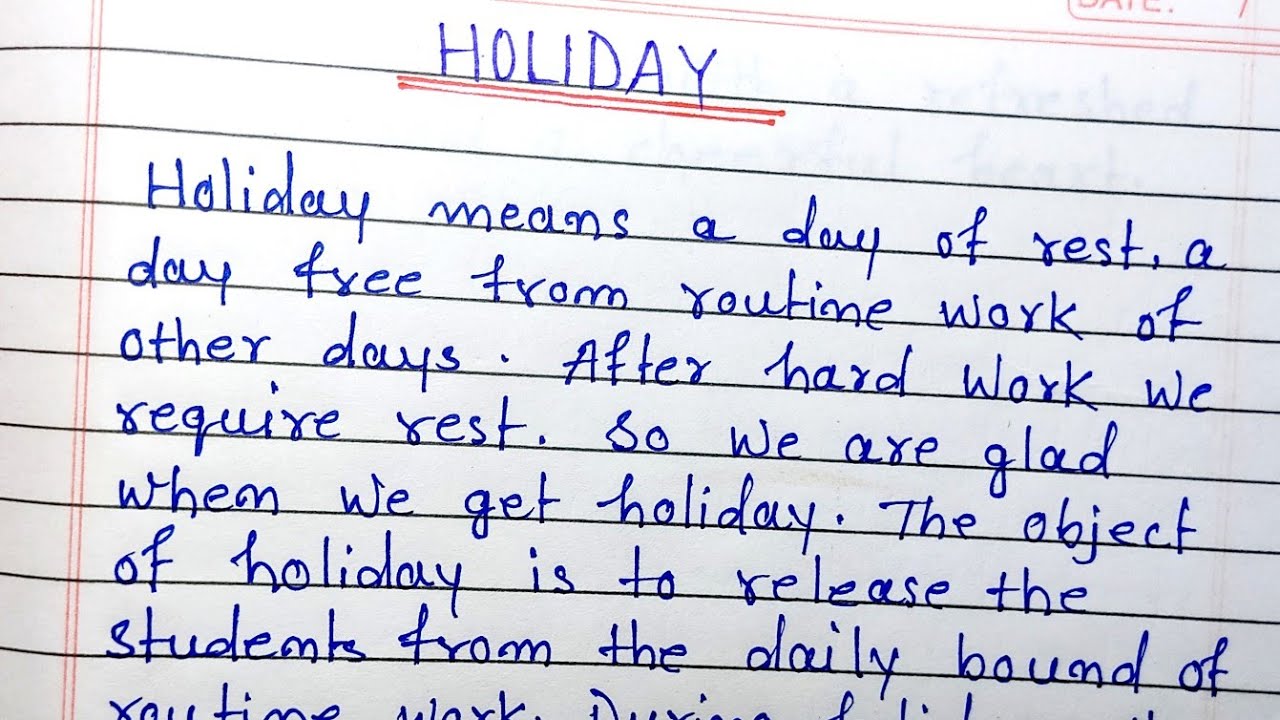 DATE: /
HOLIDAY
Holiday means a day of rest, a
day free from routine work of
other days. After hard work we
require rest. So we are glad
when we get holiday. The object
of holiday is to release the
students from the daily bound of
routine work. During